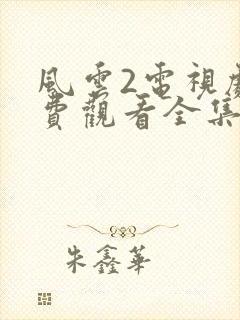 風雲2電視劇
費觀看全集
朱鑫華